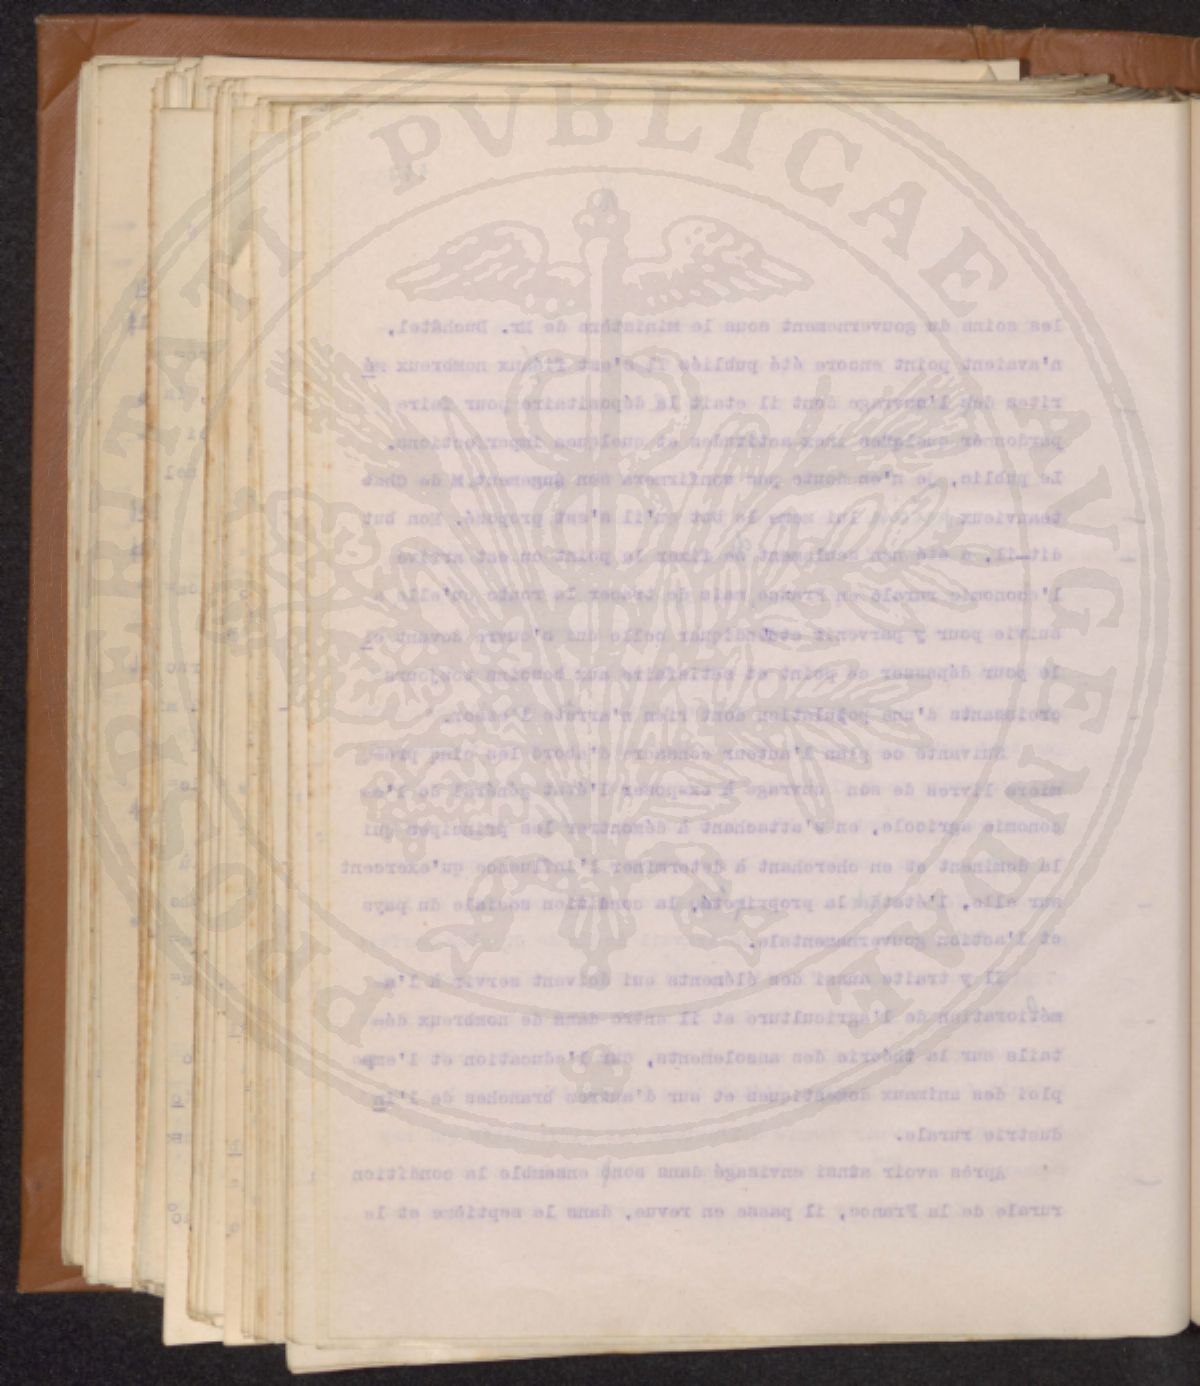 PROSPERITATI PVBLICAE AVGENDAE
les soins du gouvernement sous le ministère de Mr. Duchâtel,
n'avaient point encore été publiés Il s'est fié aux nombreux mé
rites de l'ouvrage dont il etait le dépositaire pour faire
pardonner quelques inex actitudes et quelques imperfections.
Le public, je n'en doute pas confirmera son jugement. M de Chat
teauvieux lui meme le but qu'il s'est proposé. Mon but
dit-il, a été non seulement de fixer le point ou est arrivé
l'economie rurale en France mais de tracer la route qu'elle a
suivie pour y parvenir et d'indiquer celle qui s'ouvre devant el
le pour dépasser ce point et satisfaire aux besoins toujours
croissants d'une population dont rien n'arrete l'essor."
Suivante ce plan l'auteur consacre d'abord les cinq pre-
miers livres de son ouvrage à exoposer l'état général de l'é-
conomie agricole, en s'attachant à démontrer les principes qui
la dominent et en cherchant à determiner l'influence qu'exercent
sur elle, l'état de la propriété, la condition sociale du pays
et l'action gouvernementale.
Il y traite aussi des éléments qui doivent servir à l'a-
mélioration de l'agriculture et il entre dans de nombreux dé-
tails sur la théorie des assolements, sur l'education et l'emp
ploi des animaux domestiques et sur d'autres branches de l'in
dustrie rurale.
Après avoir ainsi envisagé dans son ensemble la condition
rurale de la France, il passe en revue, dans le septième et le